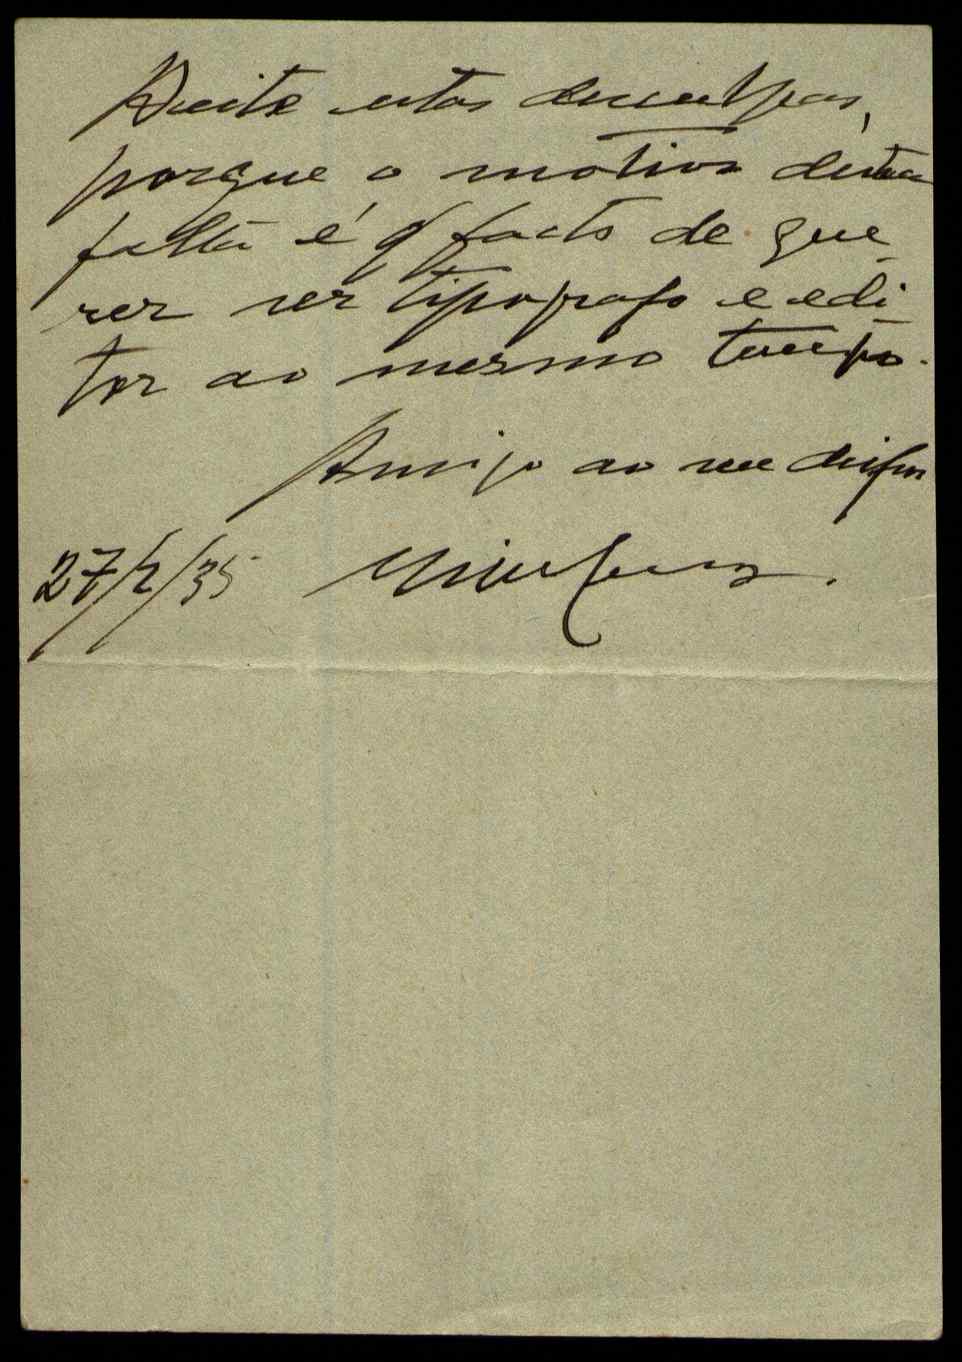 Aceite estas desculpas,
porque o motivo desta
falta é o facto de que-
rer ser tipografo e edi-
tor ao mesmo tempo.
Amigo ao seu dispor
27/2/35